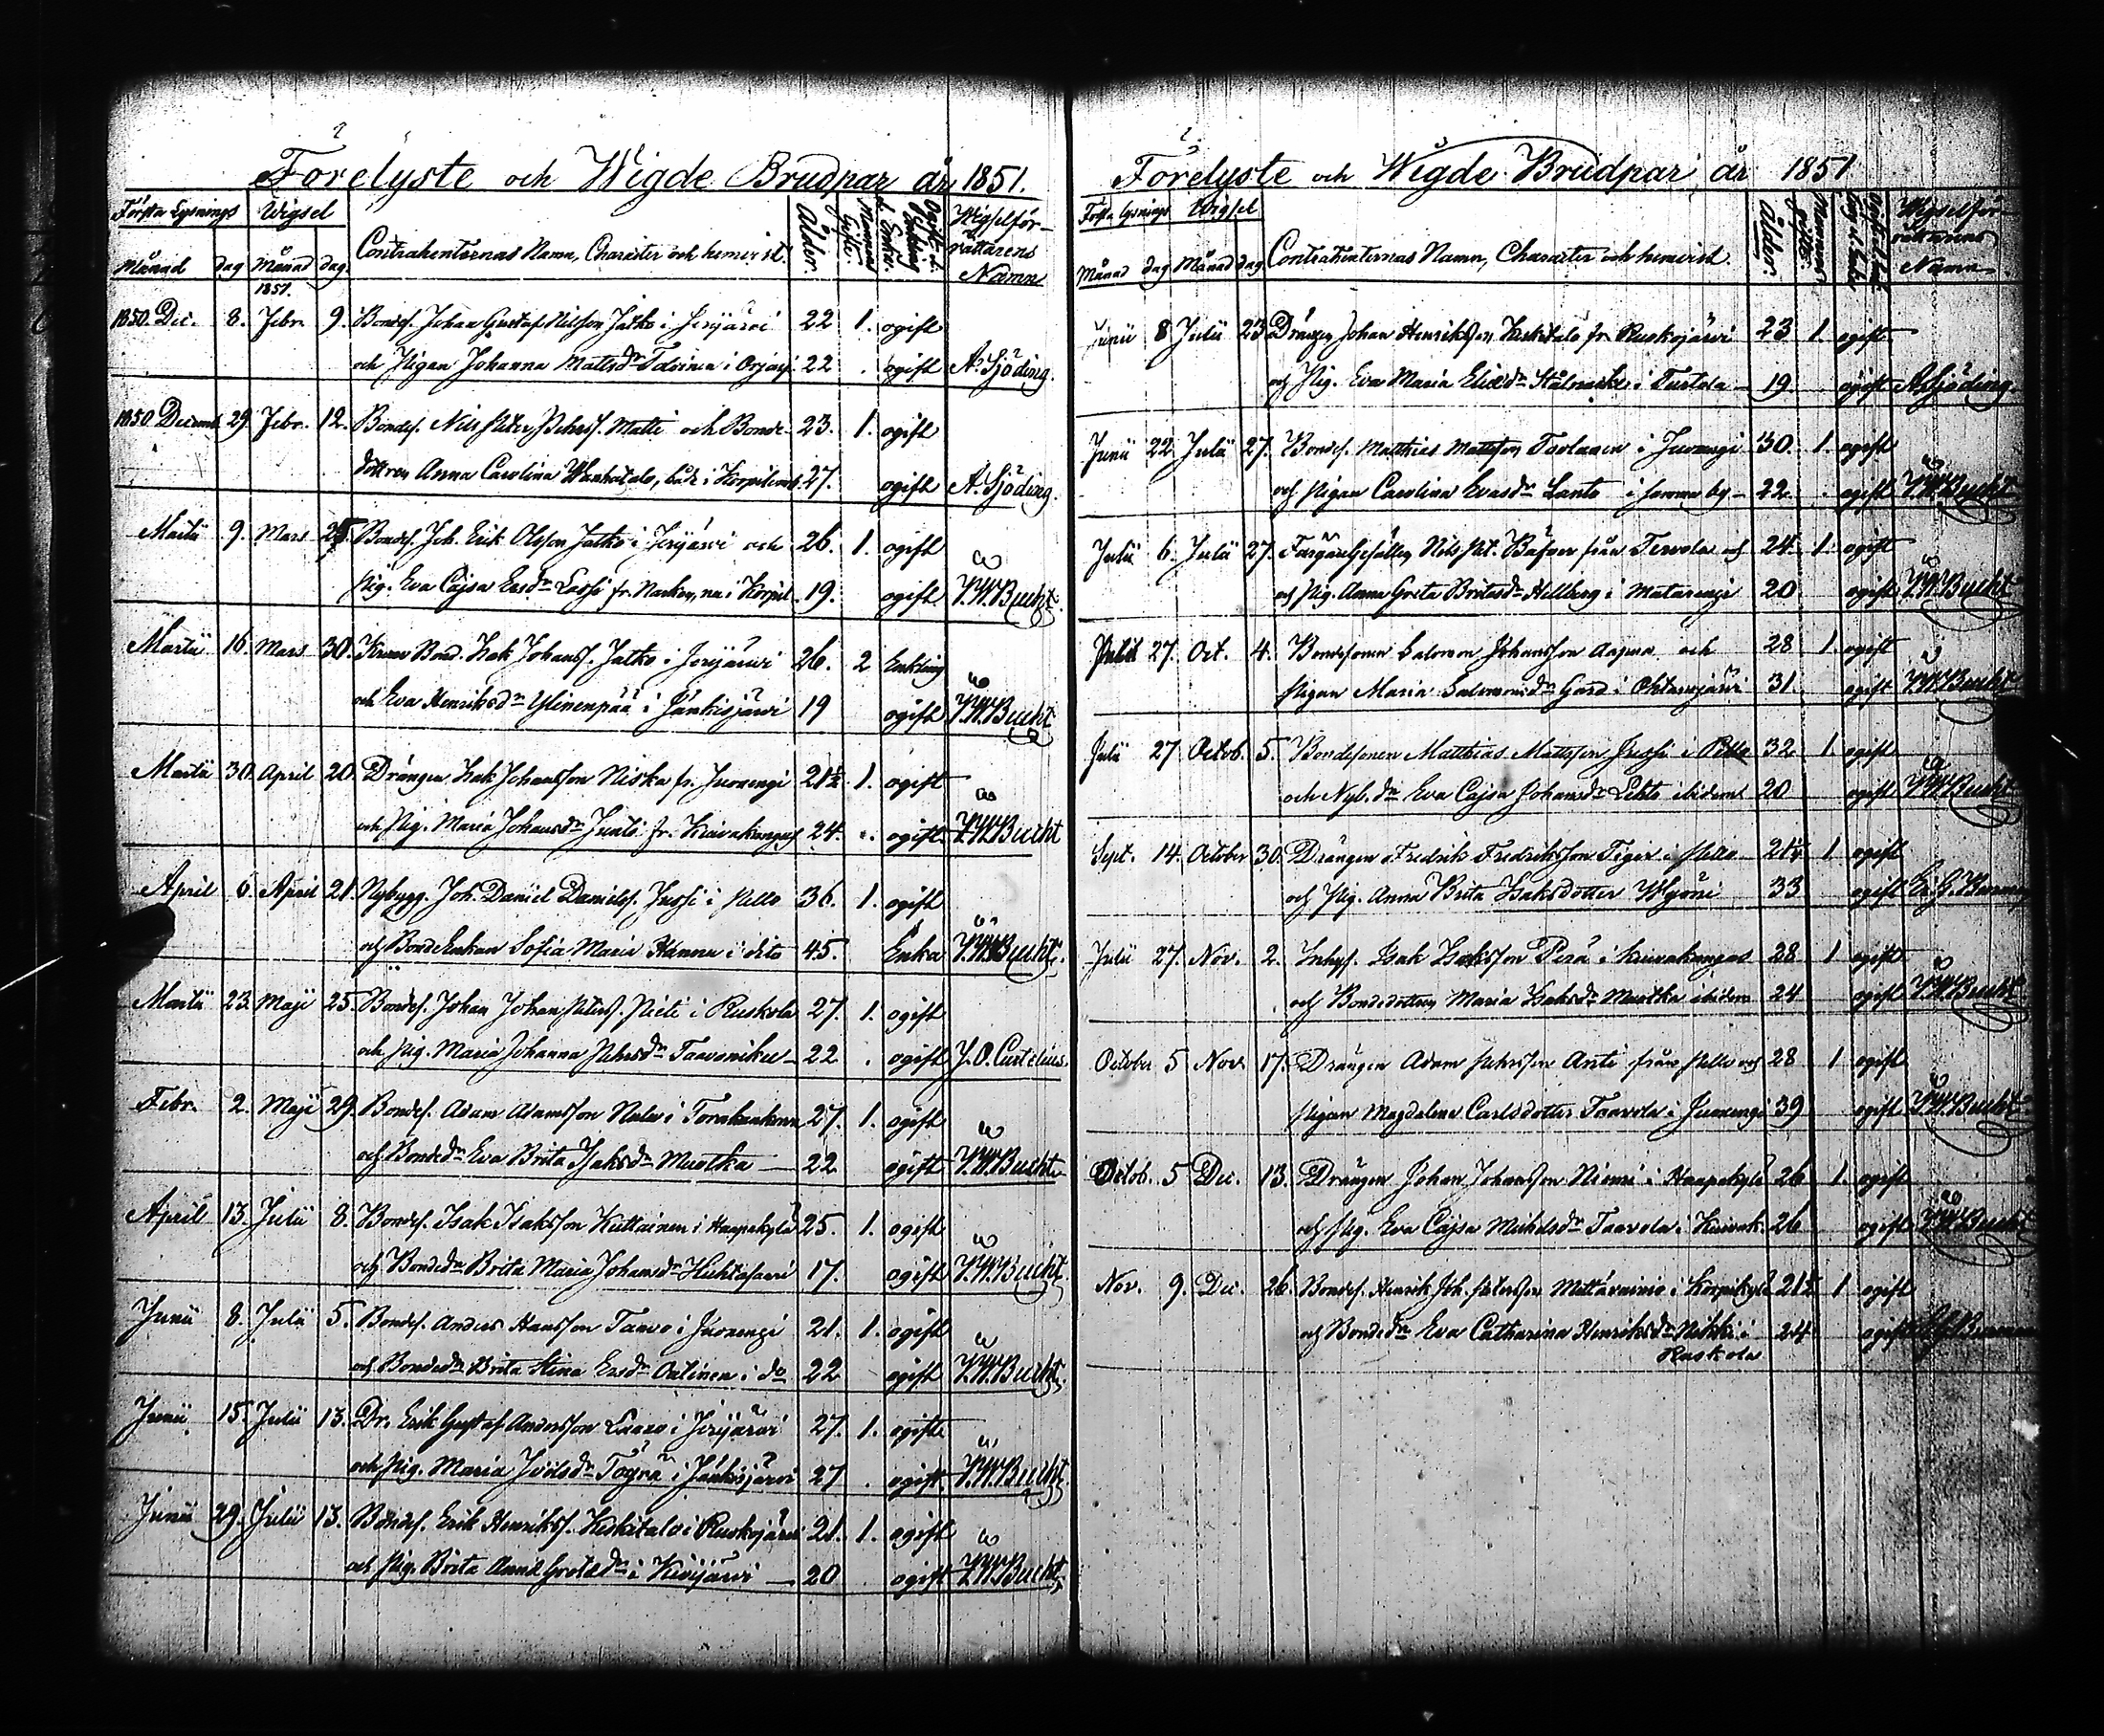 Förelyste och Wigde Brudpar år 1851.
Första Lysnings Wigsel Contrahenternas Namn, Character och hemvist. Ålder. Mannens Gifte. Wigselför-
rättarens
Månad dag Månad dag Namn
1851.
1850. Dec. 8. Febr. 9. Bondes. Johan Gustaf Nilsson Jatko i Jerijärvi 22 1. ogift
och Pigan Johanna Mattsdr i 22 . ogift A. Sjöding.
1850 Decemb. 29. Febr. 12. Bondes. Nils Petter Pehrss. Matti och Bonde- 23. 1. ogift
dottren Anna Carolina Wanhatalo, båda i 27. ogift A. Sjöding.
Martii 9. Mars Bondes. Joh. Erik Olsson Jatko i Jerijärvi och 26. 1. ogift
Pig. Eva Cajsa Ersdr Lassi fr. i Korpil. 19. ogift Bucht.
Martii 16. Mars 30. Bond. Isak Johanss. Jatko i Jerijärvi 26. 2 Enkling
och Eva Henriksdr Ylinenpää i Jänkisjärvi 19 ogift Bucht
Martii 30. April 20. Drängen Isak Johansson Niska fr. Juoxengi 21½ 1. ogift
och Pig. Maria Johansdr fr. Kuivakangas 24. . ogift. Bucht
April 6. April 21. Nybygg. Joh. Daniel Daniels. Jussi i Pello 36. 1. ogift
och BondeEnkan Sofia Maria Hannu i dito 45. Enka Bucht.
Martii 23. Maji 25. Bondes. Johan Johan Peterss. Pieti i Ruskola 27. 1. ogift
och Pig. Maria Johanna Pehrsdr Taavoniku 22 . ogift J. O. Curtelius.
Febr. 2. Maji 29. Bondes. Adam Adamsson i 27. 1. ogift
och Bondedr Eva Brita Isaksdr Muotka 22 ogift Bucht
April 13. Julii 8. Bondes. Isak Isaksson Kuttainen i Haapakylä 25. 1. ogift
och Bondedr Brita Maria Johansdr Hietasaari 17. ogift Bucht.
Junii 8. Julii 5. Bondes. Anders Hansson Taavo i Juoxengi 21. 1. ogift
och Bondedr Brita Stina Ersdr i do 22 ogift Bucht.
Junii 15. Julii 13. Dr. Erik Gustaf Andersson i Jerijärvi 27. 1. ogift
och Pig. Maria Töyrä i Jänkisjärvi 27 . ogift. Bucht.
Junii 29. Julii 13. Bondes. Erik Henrikss. Keskitalo i Ruskojärvi 21. 1. ogift
och Pig. Brita Anna Gretasdr i Kivijärvi 20 ogift Bucht
Förelyste och Wigde Brudpar år 1851
Första Lysnings Wigsel Contrahenternas Namn, Character och hemvist. Ålder. Wigselför-
rättarens
Månad dag Månad dag Namn
Junii 8 Julii 23 Drängen Johan Henriksson Keskitalo fr. Ruskojärvi 23 1. ogift
och Pig. Eva Maria Eliædr Stålnacke i Turtola 19. ogift A. Sjöding.
Junii 22 Julii 27. Bondes. Matthias Mattsson i Juoxengi 30. 1. ogift
och Pigan Carolina Evasdr Lanto i samma by 22. . ogift Bucht
Julii 6. Julii 27. Färgaregesällen Nils Pet. Bäfver från Tervola och 24. 1. ogift
och Pig. Anna Greta Britasdr Hellberg i Matarengi 20 ogift Bucht
Julii 27. Oct. 4. Bondesonen Salomon Johansson och 28 1. ogift
Pigan Maria Salomonsdr Gard i Ohtanajärvi 31. ogift Bucht
Julii 27 Octob. 5. Bondesonen Matthias Mattsson Jussi i Pello 32 1. ogift
och Nyb.dr Eva Cajsa Johansdr Lehto ibidem 20 ogift Bucht
Sept. 14. October 30. Drängen Fredrik Fredriksson Tiger i Pello 1 ogift
och Pig. Anna Brita Isaksdotter 33 ogift
Julii 27. Nov. 2. Inhys. Isak Isaksson Perä i Kuivakangas 28 1 ogift
och Bondedottren Maria Isaksdr Muotka ibidem 24 ogift Bucht
October 5 Nov. 17. Drängen Adam Pehrsson Anti från Pello och 28 1 ogift
Pigan Magdalena Carlsdotter Taavola i Juoxengi 39 ogift Bucht
Octob. 5 Dec. 13. Drängen Johan Johansson Niemi i Haapakylä 26 1. ogift
och Pig. Eva Cajsa Mickelsdr Taavola i Kuivak. 26 ogift Bucht
Nov. 9. Dec. 26. Bondes. Henrik Joh. Petersson i Korpikylä 21½ 1 ogift
och Bondedr Eva Catharina Henriksdr Nikki i 24 ogift
Ruskola